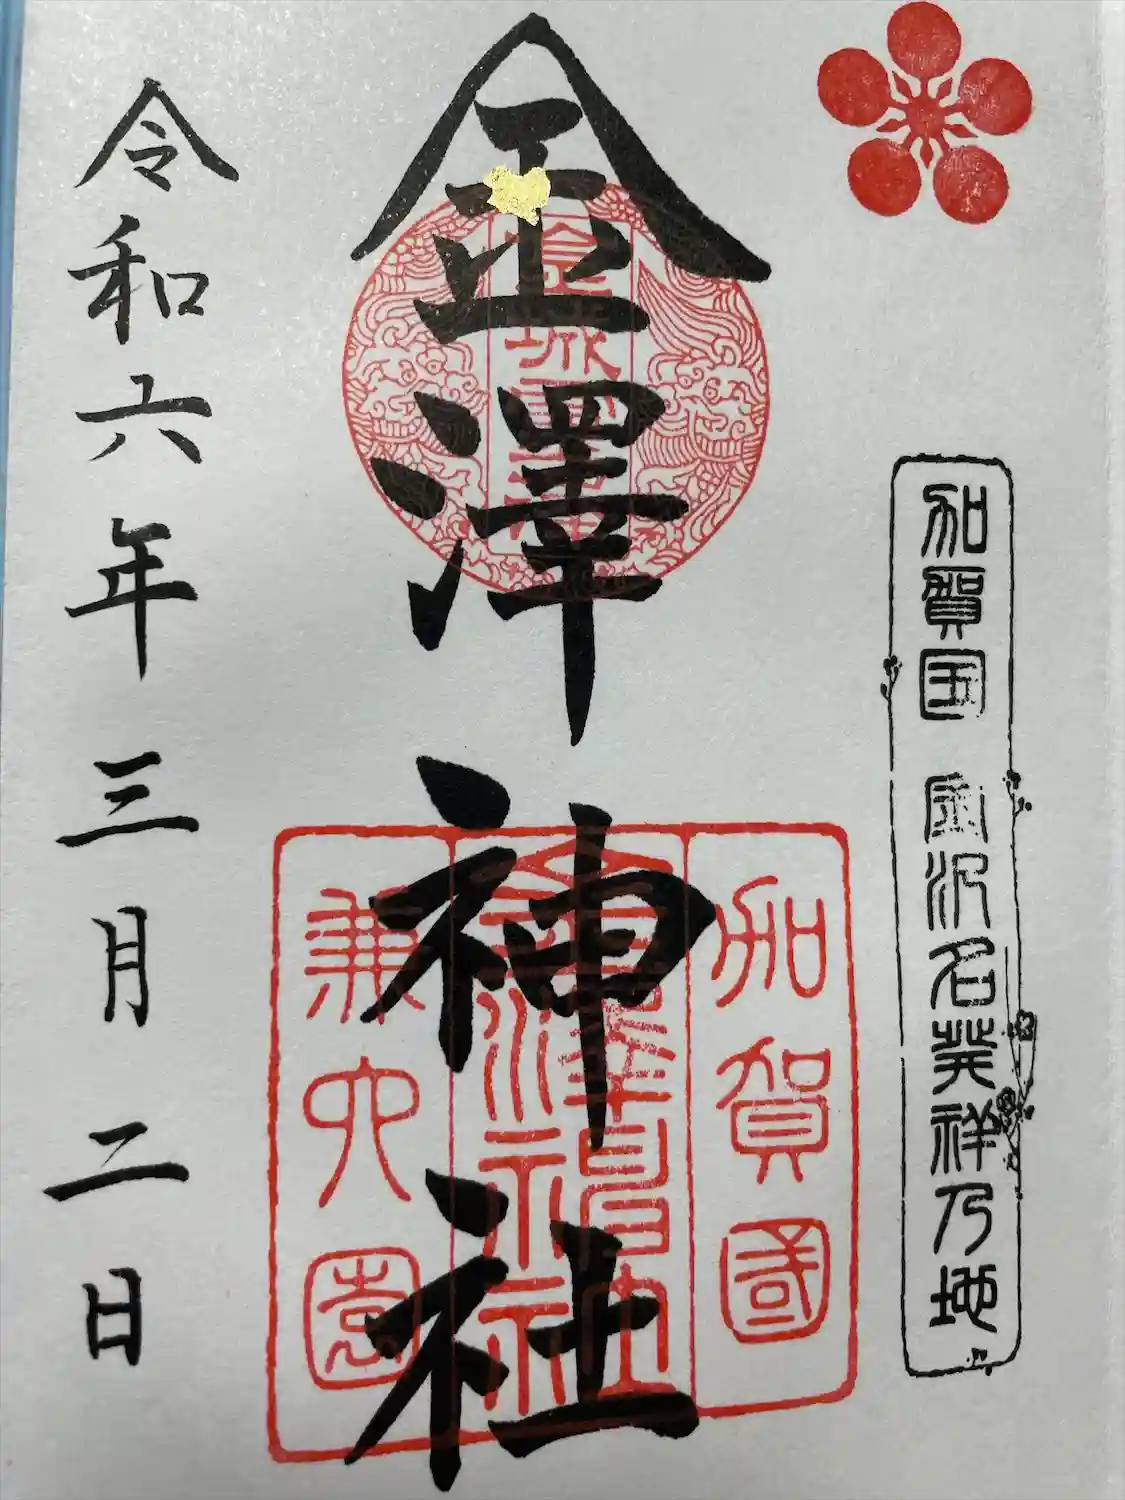 加賀国 金沢名発祥乃地
金澤神社
加賀國
金澤神社
兼六園
令和六年三月二日